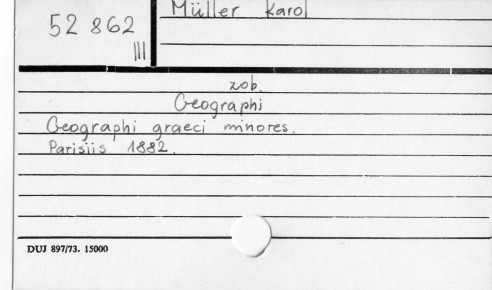 Müller Karol
52 862
III
zob.
Geographi
Geographi graeci minores.
Parisiis 1882.
DUJ 897/73. 15000